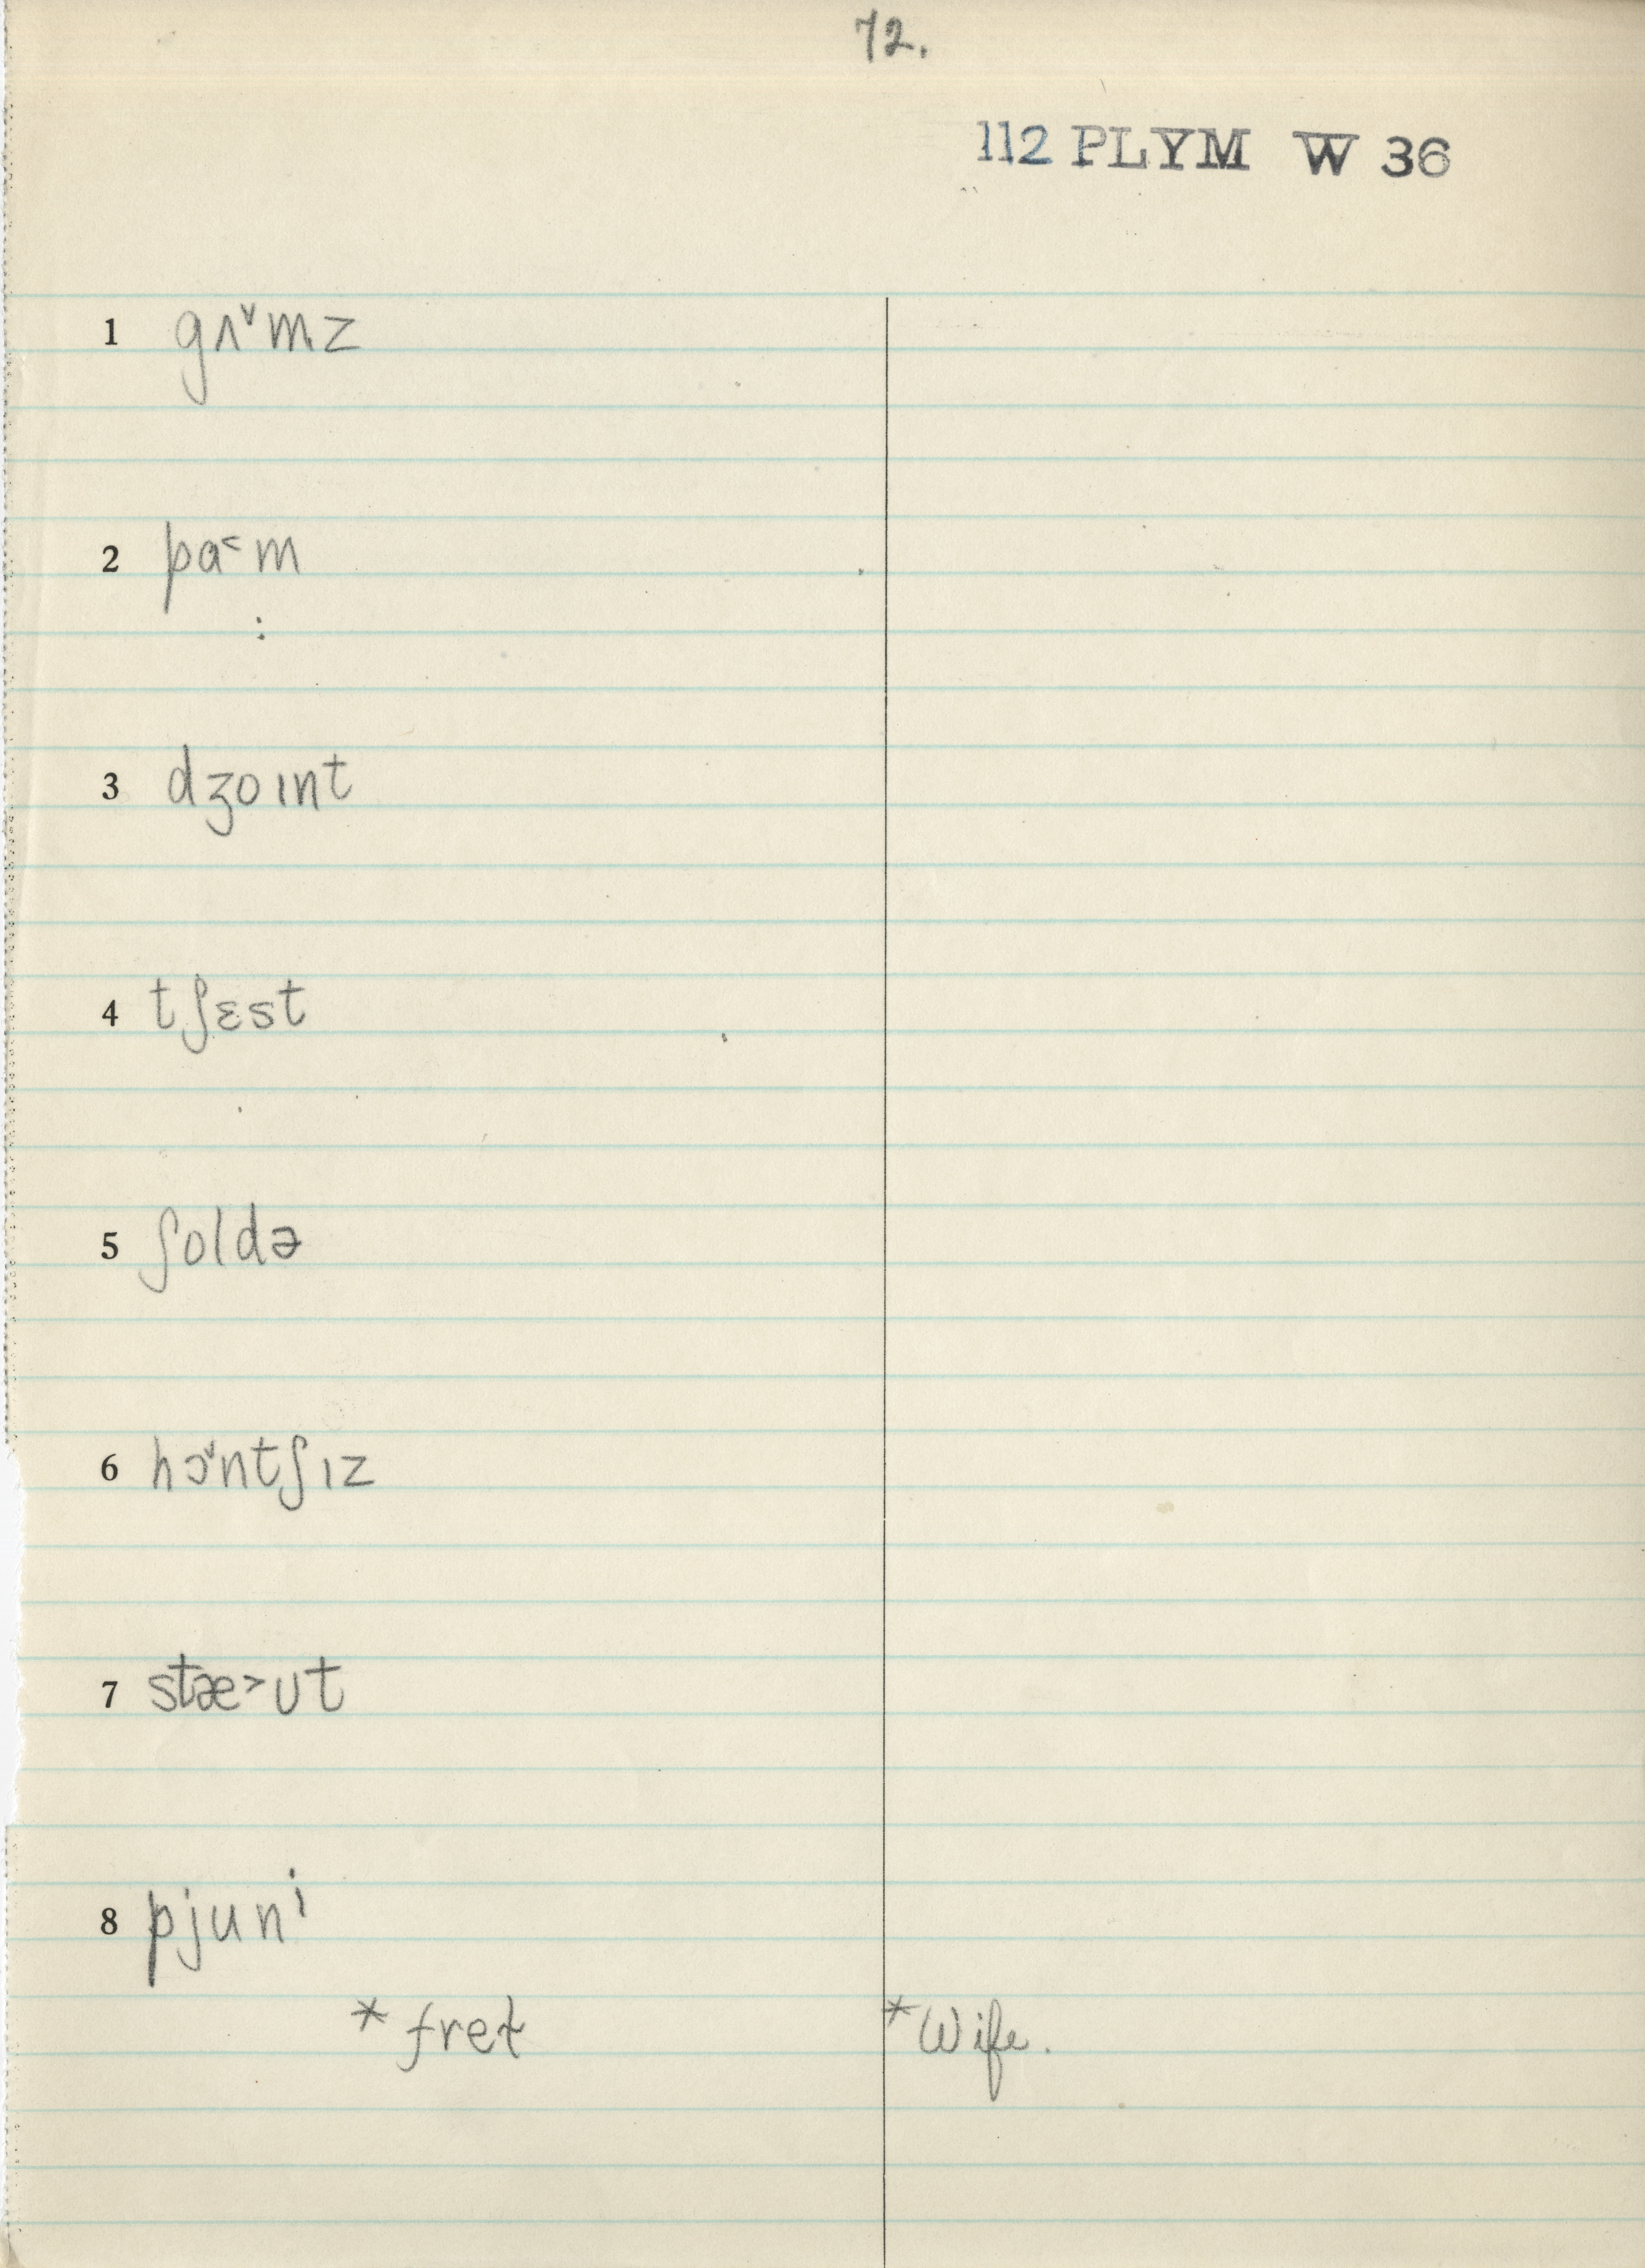 72.
112 PLYM W 36
1 gʌ˅mz
2 pɑ˂m
3 dʒoɪnt
4 tʃɛst
5 ʃoldə
6 hɔ˅ntʃɪz
7 stæ˃ʊt
8 pjunⁱ
* fret * Wife.